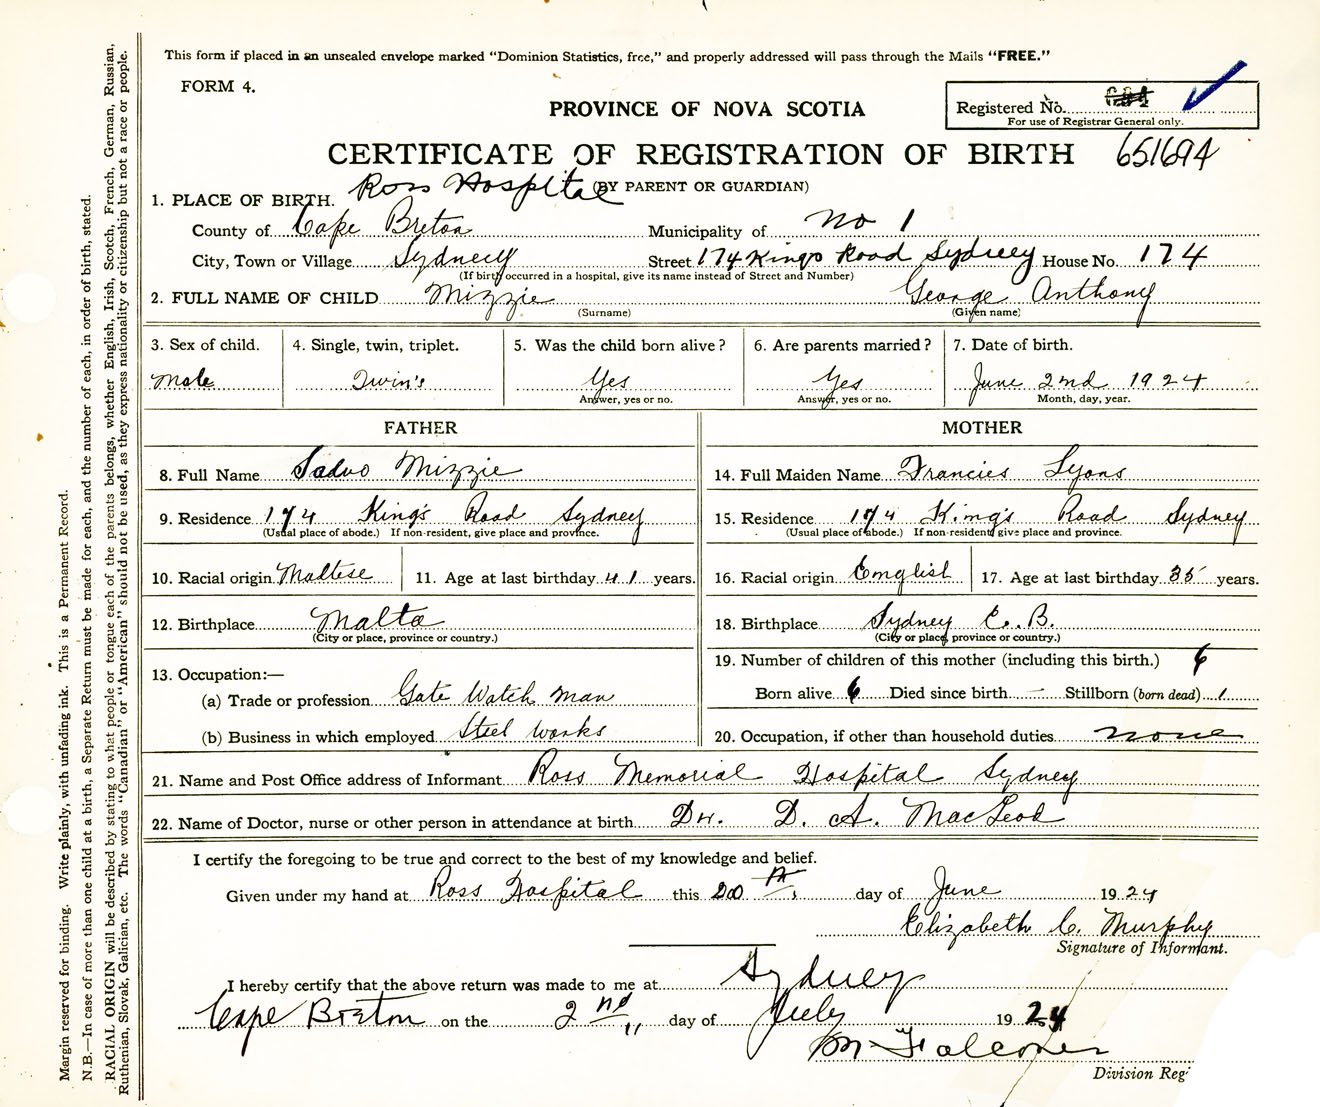 This form if placed in an unsealed envelope marked "Dominion Statistics, free," and properly addressed will pass through the Mails "FREE."
FORM 4.
PROVINCE OF NOVA SCOTIA
Registered No.
For use of Registrar General only.
CERTIFICATE OF REGISTRATION OF BIRTH 651694
(BY PARENT OR GUARDIAN)
1. PLACE OF BIRTH. Ross Hospital
County of Cape Breton Municipality of No 1
City, Town or Village Sydney Street 174 Kings Road Sydney House No. 174
(If birth occurred in a hospital, give its name instead of Street and Number)
2. FULL NAME OF CHILD Mizzie George Anthony
(Surname) (Given name)
3. Sex of child. 4. Single, twin, triplet. 5. Was the child born alive? 6. Are parents married? 7. Date of birth.
Male Twin's Yes Yes June 2nd 1924
Answer, yes or no. Answer, yes or no. Month, day, year.
FATHER MOTHER
8. Full Name Mizzie 14. Full Maiden Name Francies Lyons
9. Residence 174 King's Road Sydney 15. Residence 174 King's Road Sydney
(Usual place of abode.) If non-resident, give place and province. (Usual place of abode.) If non-resident give place and province.
10. Racial origin Maltese 11. Age at last birthday 41 years. 16. Racial origin English 17. Age at last birthday 35 years.
12. Birthplace Malta 18. Birthplace Sydney C.B.
(City or place, province or country.) (City or place, province or country.)
13. Occupation:— 19. Number of children of this mother (including this birth.) 6
(a) Trade or profession Gate Watch man Born alive 6 Died since birth — Stillborn (born dead) 1
(b) Business in which employed Steel Works 20. Occupation, if other than household duties none
21. Name and Post Office address of Informant Ross Memorial Hospital Sydney
22. Name of Doctor, nurse or other person in attendance at birth Dr. D. A. MacLeod
I certify the foregoing to be true and correct to the best of my knowledge and belief.
Given under my hand at Ross Hospital this 20th day of June 1924
Elizabeth C. Murphy
Signature of Informant.
I hereby certify that the above return was made to me at Sydney
Cape Breton on the 2nd day of July 1924
M Falconer
Division Reg
Margin reserved for binding. Write plainly, with unfading ink. This is a Permanent Record.
N.B.—In case of more than one child at a birth, a Separate Return must be made for each, and the number of each, in order of birth, stated.
RACIAL ORIGIN will be described by stating to what people or tongue each of the parents belongs, whether English, Irish, Scotch, French, German, Russian,
Ruthenian, Slovak, Galician, etc. The words "Canadian" or "American" should not be used, as they express nationality or citizenship but not a race or people.